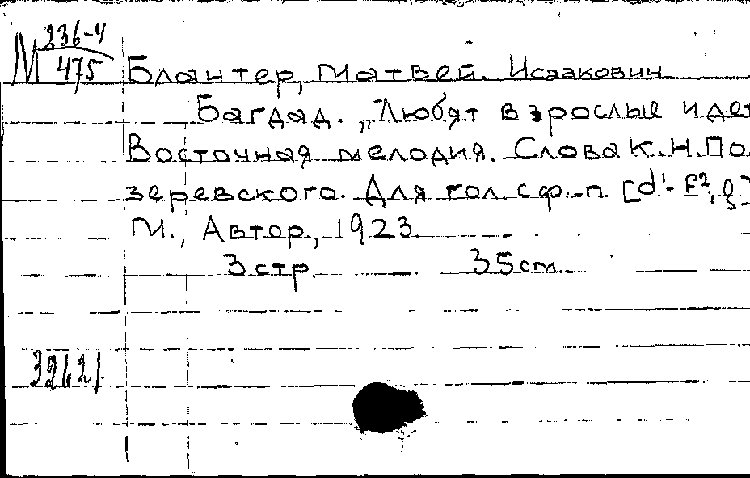 М 236-4
475
Блантер, Матвей Исаакович
Багдад. "Любят взрослые и дет
Восточная мелодия. Слова К. Н. По
зеревского. Для гол. с ф.-п. [d¹-f²,
М., Автор, 1923
3 стр 35 см
32621